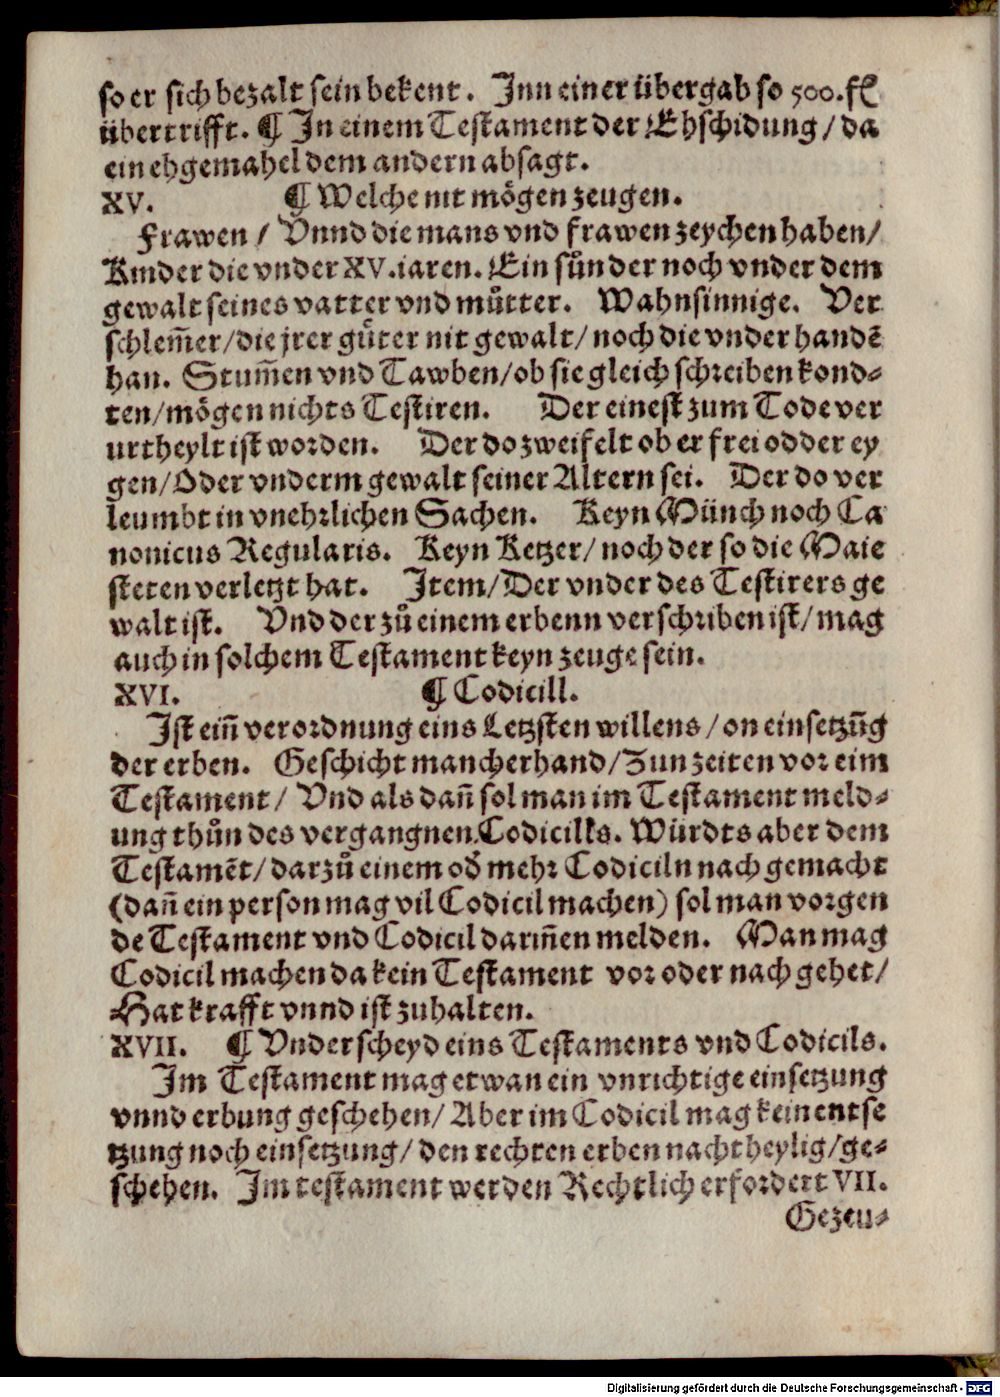 so er sich bezalt sein bekent. Jnn einer übergab so 500. fl
übertrifft. ¶ Jn einem Testament der Ehschidung / da
ein ehgemahel dem andern absagt.
XV. ¶ Welche nit mögen zeugen.
Frawen / Vnnd die mans vnd frawen zeychen haben /
Kinder die vnder XV. iaren. Ein sůn der noch vnder dem
gewalt seines vatter vnd můtter. Wahnsinnige. Ver
schlem̃er / die jrer gůter nit gewalt / noch die vnder handẽ
han. Stum̃en vnd Tawben / ob sie gleich schreiben kond⸗
ten / mögen nichts Testiren. Der einest zum Tode ver
urtheylt ist worden. Der do zweifelt ob er frei odder ey
gen / Oder vnderm gewalt seiner Altern sei. Der do ver
leumbt in vnehrlichen Sachen. Keyn Münch noch Ca
nonicus Regularis. Keyn Ketzer / noch der so die Maie
steten verletzt hat. Jtem / Der vnder des Testirers ge
walt ist. Vnd der zů einem erbenn verschriben ist / mag
auch in solchem Testament keyn zeuge sein.
XVI. ¶ Codicill.
Jst eiñ verordnung eins Letzsten willens / on einsetzũg
der erben. Geschicht mancherhand / Zun zeiten vor eim
Testament / Vnd als dañ sol man im Testament meld⸗
ung thůn des vergangnen Codicills. Würdts aber dem
Testamẽt / darzů einem od̕ mehr Codiciln nach gemacht
(dañ ein person mag vil Codicil machen) sol man vorgen
de Testament vnd Codicil dariñen melden. Man mag
Codicil machen da kein Testament vor oder nach gehet /
Hat krafft vnnd ist zuhalten.
XVII. ¶ Vnderscheyd eins Testaments vnd Codicils.
Jm Testament mag etwan ein vnrichtige einsetzung
vnnd erbung geschehen / Aber im Codicil mag kein entse
tzung noch einsetzung / den rechten erben nachtheylig / ge⸗
schehen. Jm testament werden Rechtlich erfordert VII.
Gezeu⸗
Digitalisierung gefördert durch die Deutsche Forschungsgemeinschaft - DFG